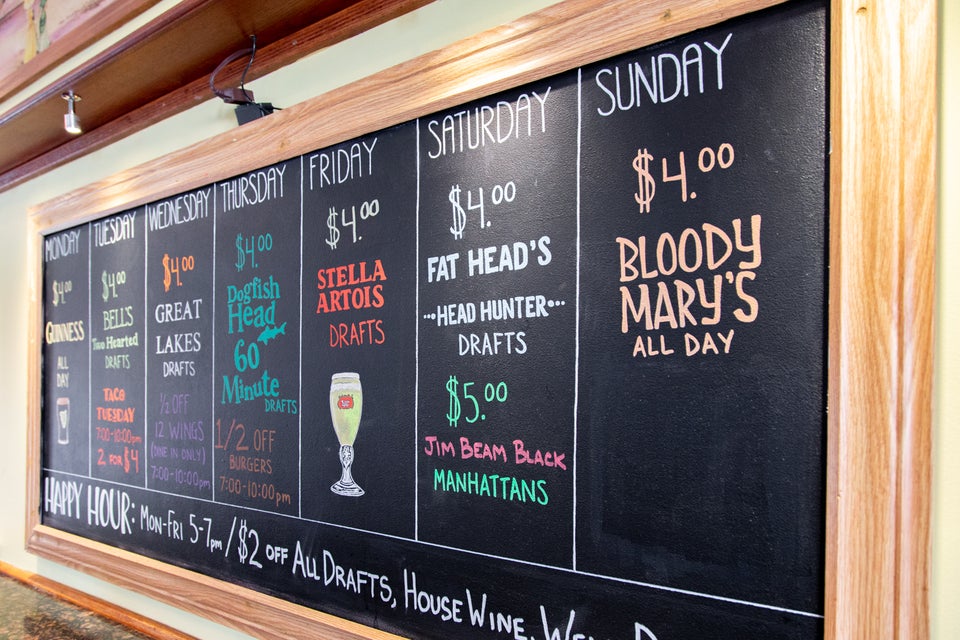 MONDAY
$4.00
GUINNESS
ALL
DAY
TUESDAY
$4.00
BELL'S
Two Hearted
DRAFTS
TACO
TUESDAY
7:00-10:00pm
2 FOR $4
WEDNESDAY
$4.00
GREAT
LAKES
DRAFTS
1/2 OFF
12 WINGS
(DINE IN ONLY)
7:00-10:00pm
THURSDAY
$4.00
Dogfish
Head
60
Minute
DRAFTS
1/2 OFF
BURGERS
7:00-10:00pm
FRIDAY
$4.00
STELLA
ARTOIS
DRAFTS
SATURDAY
$4.00
FAT HEAD'S
HEAD HUNTER
DRAFTS
$5.00
JIM BEAM BLACK
MANHATTANS
SUNDAY
$4.00
BLOODY
MARY'S
ALL DAY
HAPPY HOUR: MON-FRI 5-7pm / $2 OFF ALL DRAFTS, HOUSE WINE,